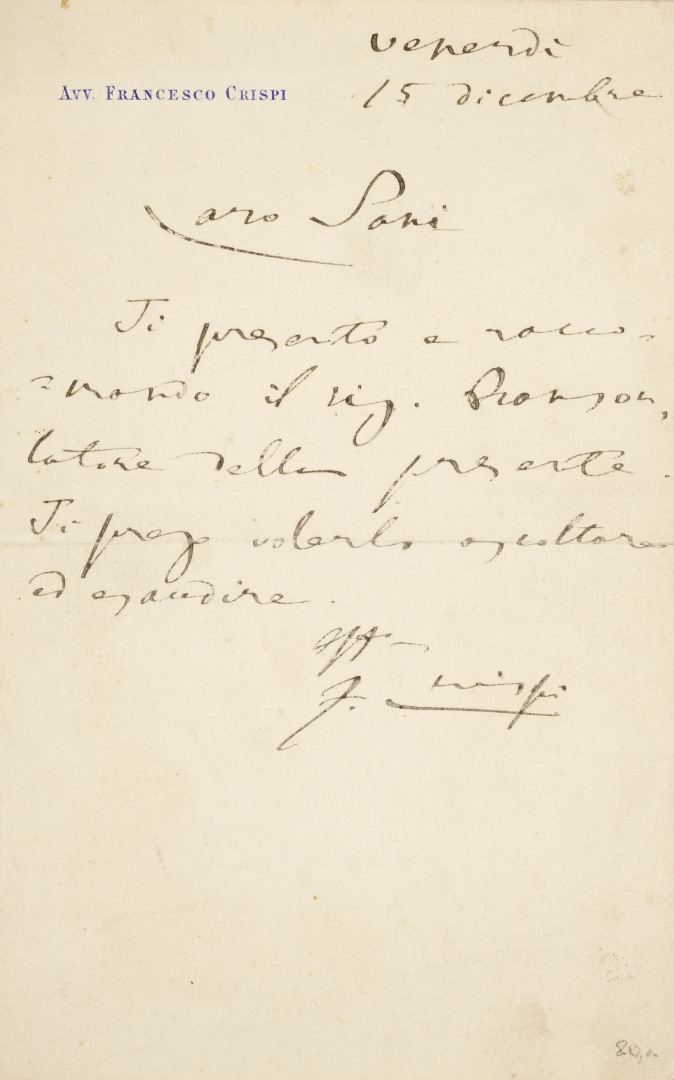 venerdì
AVV. FRANCESCO CRISPI
15 dicembre
Caro Sani
Ti presento e racco-
=mando il sig. Branson,
latore della presente.
Ti prego volerlo ascoltare
ed esaudire.
aff
F. Crispi